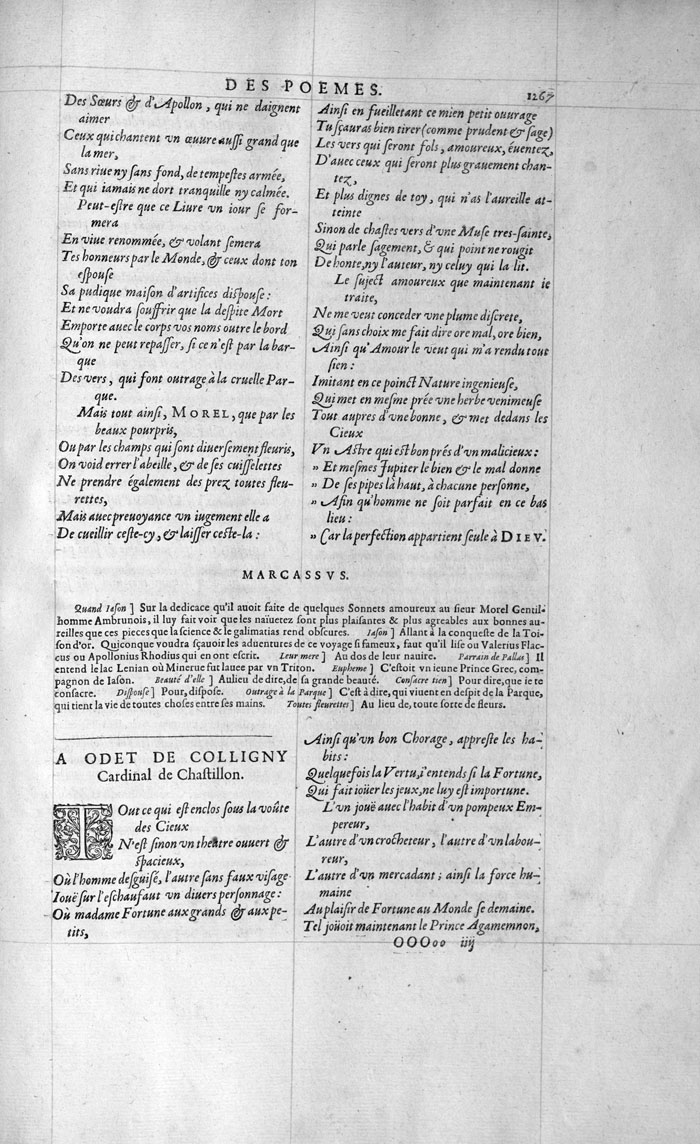 DES POEMES. 1267
Des Sœurs & d'Apollon, qui ne daignent
aimer
Ceux qui chantent vn œuure aussi grand que
la mer,
Sans riue ny sans fond, de tempestes armée,
Et qui iamais ne dort tranquille ny calmée.
Peut-estre que ce Liure vn iour se for-
mera
En viue renommée, & volant semera
Tes honneurs par le Monde, & ceux dont ton
espouse
Sa pudique maison d'artifices dispouse:
Et ne voudra souffrir que la despite Mort
Emporte auec le corps vos noms outre le bord
Qu'on ne peut repasser, si ce n'est par la bar-
que
Des vers, qui font outrage à la cruelle Par-
que.
Mais tout ainsi, MOREL, que par les
beaux pourpris,
Ou par les champs qui sont diuersement fleuris,
On void errer l'abeille, & de ses cuisselettes
Ne prendre également des prez toutes fleu-
rettes,
Mais auec preuoyance vn iugement elle a
De cueillir ceste-cy, & laisser ceste-la:
Ainsi en fueilletant ce mien petit ouurage
Tu sçauras bien tirer (comme prudent & sage)
Les vers qui seront fols, amoureux, éuentez,
D'auec ceux qui seront plus grauement chan-
tez,
Et plus dignes de toy, qui n'as l'aureille at-
teinte
Sinon de chastes vers d'vne Muse tres-sainte,
Qui parle sagement, & qui point ne rougit
De honte, ny l'auteur, ny celuy qui la lit.
Le suject amoureux que maintenant ie
traite,
Ne me veut conceder vne plume discrete,
Qui sans choix me fait dire ore mal, ore bien,
Ainsi qu'Amour le veut qui m'a rendu tout
sien:
Imitant en ce poinct Nature ingenieuse,
Qui met en mesme prée vne herbe venimeuse
Tout aupres d'vne bonne, & met dedans les
Cieux
Vn Astre qui est bon prés d'vn malicieux:
» Et mesmes Jupiter le bien & le mal donne
» De ses pipes là haut, à chacune personne,
» Afin qu'homme ne soit parfait en ce bas
lieu:
» Car la perfection appartient seule à DIEV.
MARCASSVS.
Quand Iason] Sur la dedicace qu'il auoit faite de quelques Sonnets amoureux au sieur Morel Gentil-
homme Ambrunois, il luy fait voir que les naïuetez sont plus plaisantes & plus agreables aux bonnes au-
reilles que ces pieces que la science & le galimatias rend obscures. Iason] Allant à la conqueste de la Toi-
son d'or. Quiconque voudra sçauoir les aduentures de ce voyage si fameux, faut qu'il lise ou Valerius Flac-
cus ou Apollonius Rhodius qui en ont escrit. Leur mere] Au dos de leur nauire. Parrain de Pallas] Il
entend le lac Lenian où Minerue fut lauee par vn Triton. Eupheme] C'estoit vn ieune Prince Grec, com-
pagnon de Iason. Beauté d'elle] Au lieu de dire, de sa grande beauté. Consacre tien] Pour dire, que ie te
consacre. Dispouse] Pour, dispose. Outrage à la Parque] C'est à dire, qui viuent en despit de la Parque,
qui tient la vie de toutes choses entre ses mains. Toutes fleurettes] Au lieu de, toute sorte de fleurs.
A ODET DE COLLIGNY
Cardinal de Chastillon.
TOut ce qui est enclos sous la voûte
des Cieux
N'est sinon vn theatre ouuert &
spacieux,
Où l'homme desguisé, l'autre sans faux visage
Iouë sur l'eschaufaut vn diuers personnage:
Où madame Fortune aux grands & aux pe-
tits,
Ainsi qu'vn bon Chorage, appreste les ha-
bits:
Quelquefois la Vertu, i'entends si la Fortune,
Qui fait ioüer les jeux, ne luy est importune.
L'vn jouë auec l'habit d'vn pompeux Em-
pereur,
L'autre d'vn crocheteur, l'autre d'vn labou-
reur,
L'autre d'vn mercadant; ainsi la force hu-
maine
Au plaisir de Fortune au Monde se demaine.
Tel joüoit maintenant le Prince Agamemnon,
OOOoo iiij